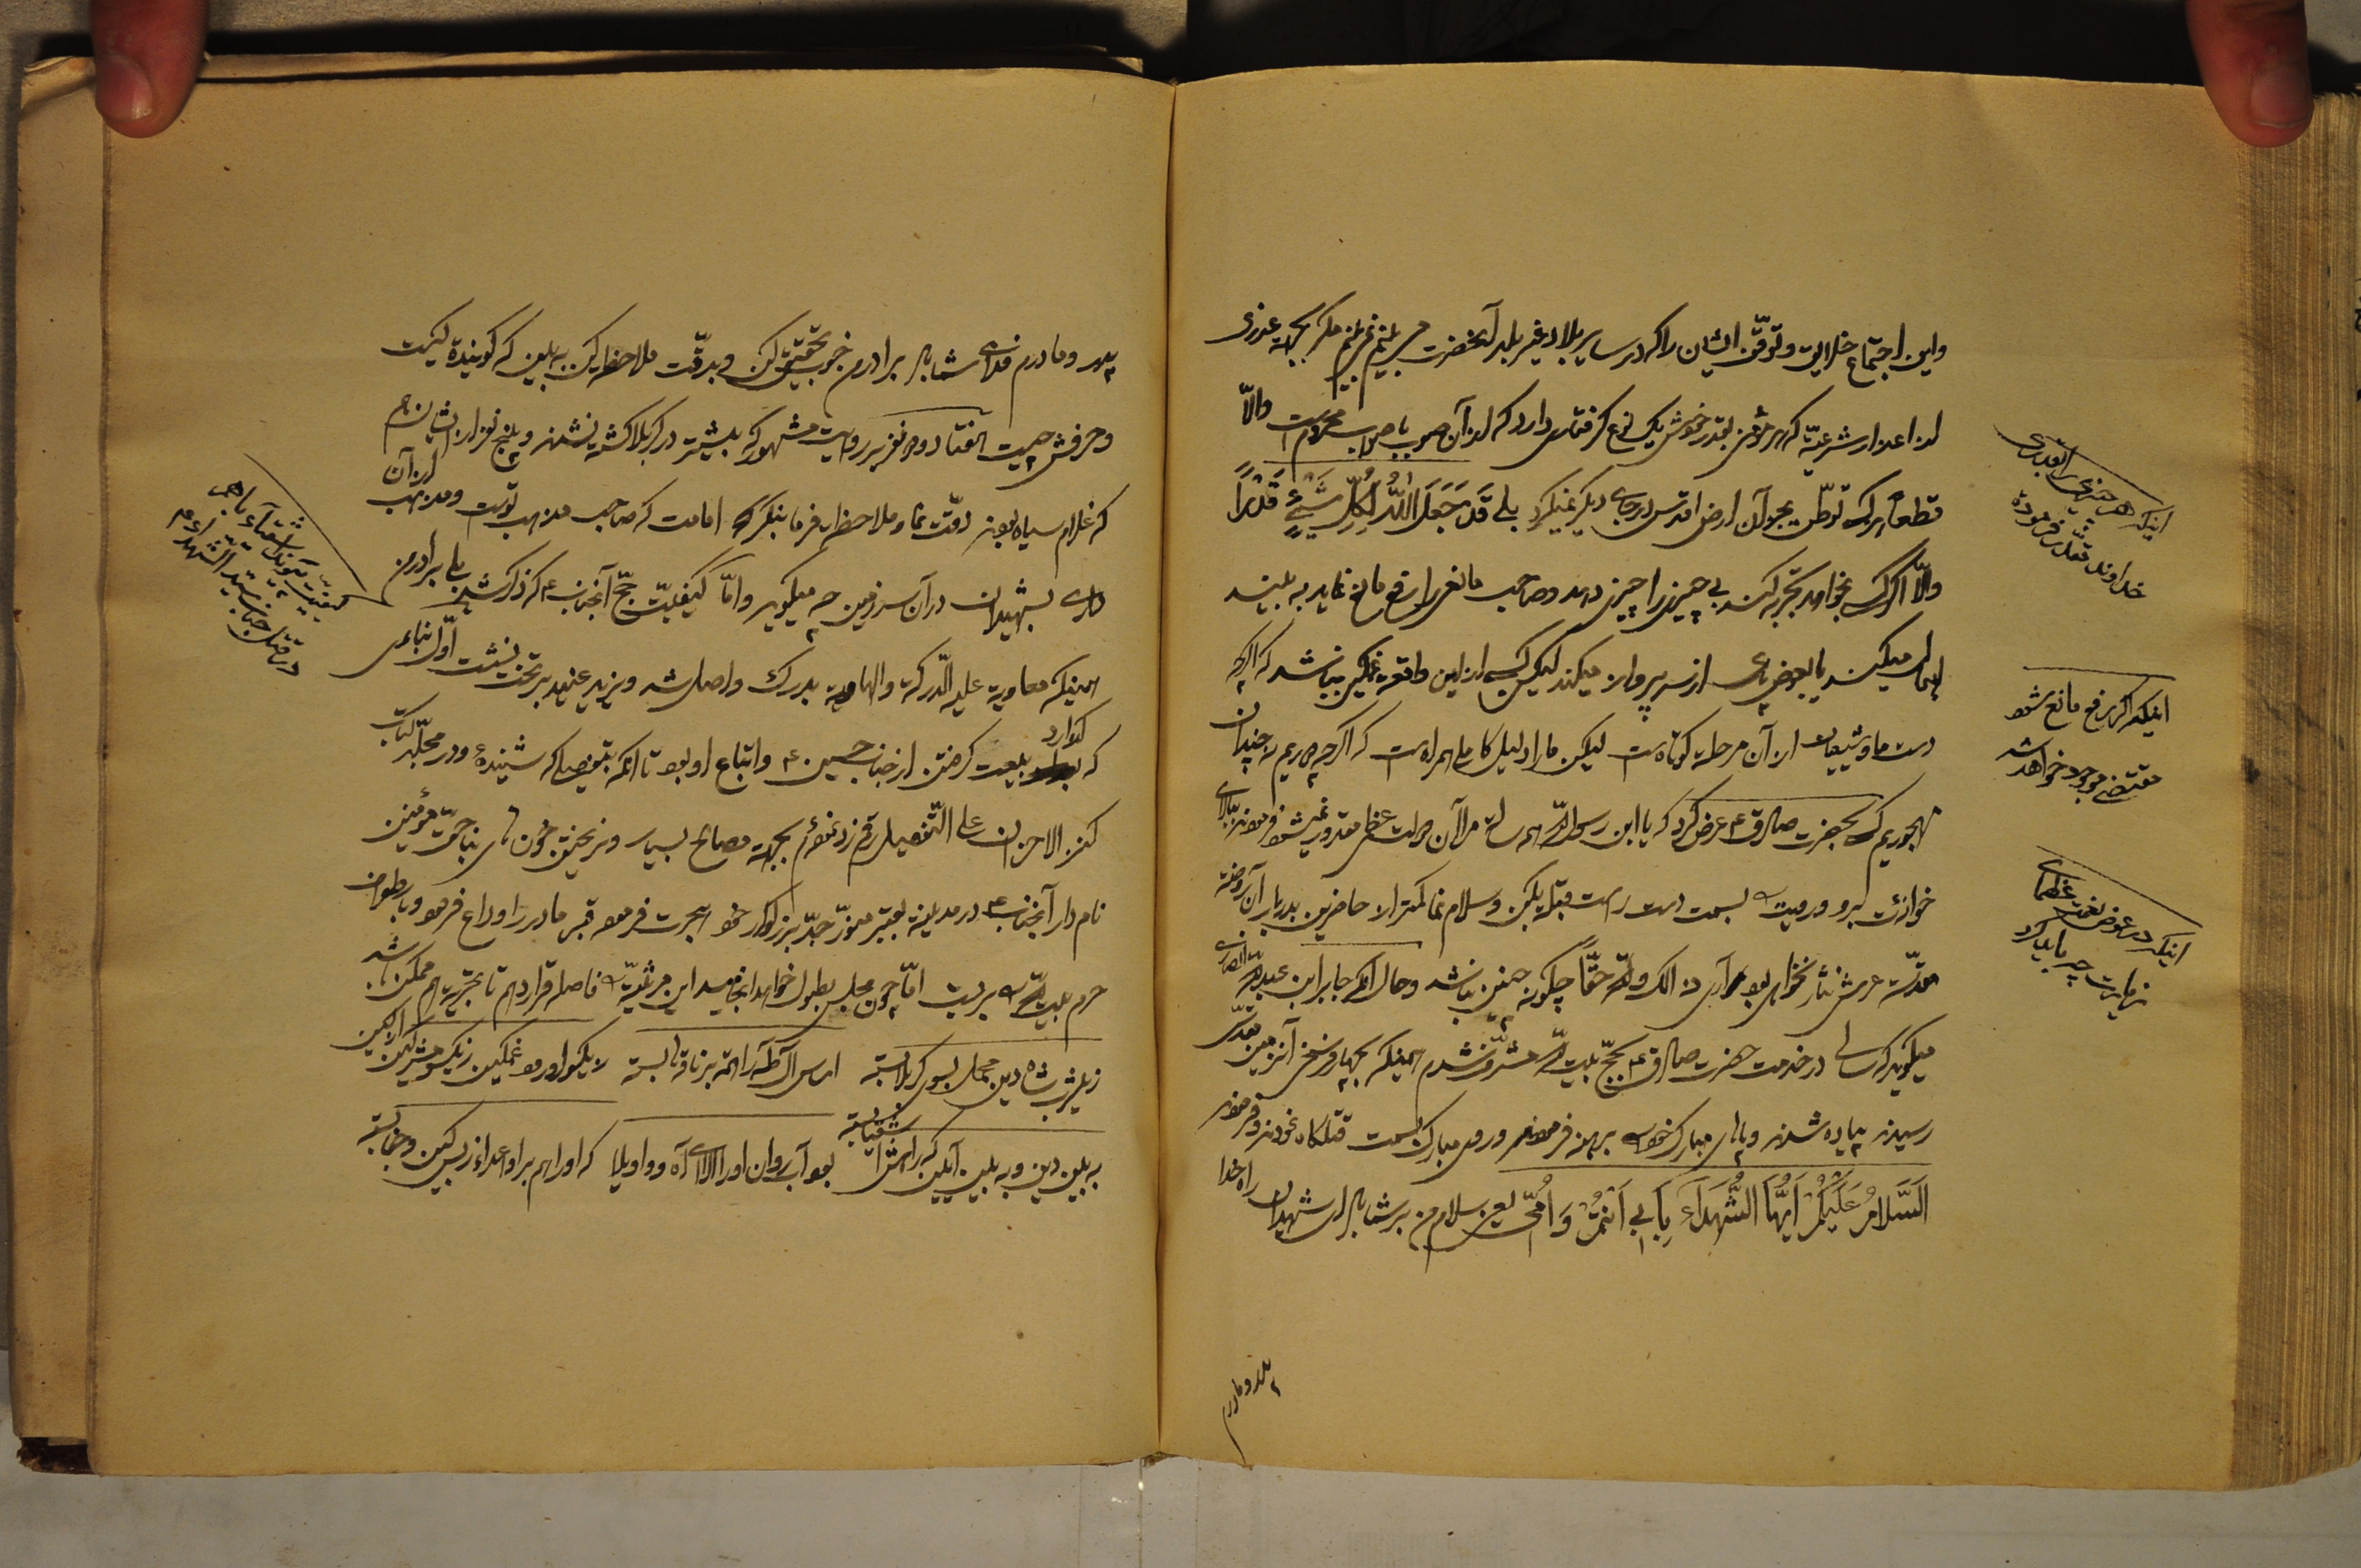 واین اجتماع خلایق و توقّف ایشان را که در سایر بلاد غیر بلد آنحضرت می بینم نمی بینم مگر بجهة عذری
از اعذار شرعیّه که هر مؤمنی بقدر خودش یک نوع گرفتاری دارد که از آن صوب با صواب محروم است والّا
قطعاً هر کس توطّن بجز آن ارض اقدس در جای دیگر نمیکرد بلی قَدْ جَعَلَ اللّٰهُ لِكُلِّ شَيْءٍ قَدْرًا
والّا اگر کسی بخواهد تجربه کند بی چیزی را چیزی دهد و صاحب مانعی را رفع مانع نماید به بیند
اهمال میکند یا بعوض پای از سر پرواز میکند لیکن کسی از این واقعه غمگین نباشد که اگرچه
دست ما و شیعیان از آن مرحله کوتاه است لیکن ما را دلیل کاملی همراه است که اگرچه دوریم نه چندان
مهجوریم کسی بحضرت صادق ع عرض کرد که یا ابن رسول اللّه همه ساله مرا آن دولت عظمی مقدور نمیشود فرمودند ببالای
خوانه ات برو و رویت بسمت دست راست قبله بکن و سلام نما کمتر از حاضرین بدربار آن روضه
مقدّسه عرش نثار نخواهی بود آری ذالک واللّه حقّاً چگونه چنین نباشد و حال آنکه جابر ابن عبداللّه انصاری
میگوید که سالی در خدمت حضرت صادق ع بحجّ بیت اللّه مشرّف شدم همینکه بچهار فرسخی آنزمین مقدّس
رسیدند پیاده شدند و پاهای مبارک خود برهنه فرمودند و روی مبارک بسمت قتلگاه نمودند و فرمودند
اَلسَّلَامُ عَلَيْكُمْ اَيُّهَا الشُّهَدَاءُ بِاَبِي اَنْتُمْ وَ اُمّي یعنی سلام من بر شما باد ای شهیدان راه خدا
پدر و مادرم
اینکه هر چیزی را بقدری
خداوند مقدّر فرموده
اینکه اگر رفع مانع شود
مقتضی موجود خواهد شد
اینکه در عوض نعمت عظمای
زیارت چه باید کرد
پدر و مادرم فدای شما باد برادرم خوب تحقیق کن و بدقّت ملاحظه کن به بین که گوینده کیست
و حرفش چیست هفتاد و دو نفر بر روایت مشهوره بیشتر در کربلا کشته نشدند و پنج نفر از ایشان هم
که غلام سیاه بودند دقّت نما و ملاحظه فرما بنگر که امامت که صاحب مذهب تو است و مذهب از آن
داری بشهیدان در آن سرزمین چه میگوید وامّا کیفیّت حجّ آنجناب ع که ذکر شد بلی برادرم
همینکه معاویه علیه الدّرکة والهاویه بدرک واصل شد و یزید عنید بر تخت نشست اوّل بنای
که گذارد بیعت گرفتن از جناب حسین ع و اتباع او بود تا آنکه بتفصیلی که شنیدهٔ و در مجلّد کتاب
کنز الاحزان علی التّفصیل رقم زد نمودم بجهة مصالح بسیار و نریختن خون های بناحقّ مؤمنین
نام دار آنجناب ع در مدینه بقبر منوّر جدّ بزرگوار خود هجرت فرمود قبر مادر را وداع فرمود و با بطواف
حرم بیت اللّه بربست امّا چون مجلس بطول خواهد انجامید این مرثیّه فاصله قرار دهم تا تجزیه هم ممکن باشد
ز یثرب شاه دین محمل بسوی کربلا بسته اساس آل طه را همه بر ناقه ها بسته
به بین دین و به بین آیین که راهش اشقیا بسته بود آب روان او را الا ای آه و واویلا که او را هم بر او اعداء ز بس کین و جفا بسته
کیفیت پیوند اشقیاء با هم
در قتل جناب سید الشهداء ع